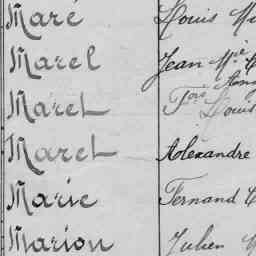 Maré Louis
Marel Jean Mie
Maret Fois Louis
Maret Alexandre
Marie Fernand
Marion Julien